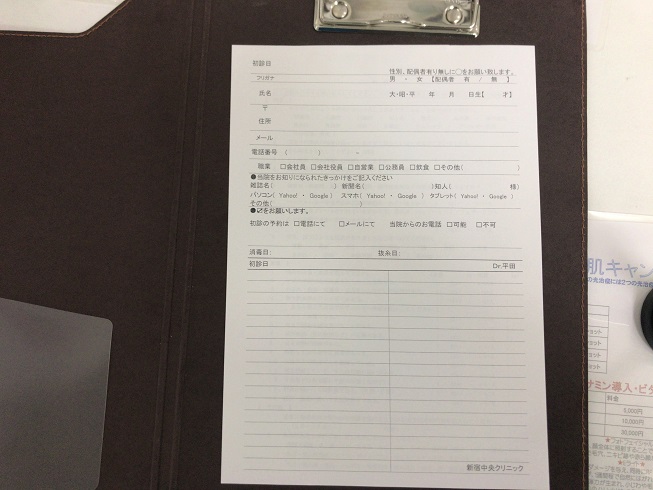 初診日
性別、配偶者有り無しに○をお願い致します。
フリガナ
男 ・ 女 【配偶者 有 / 無 】
氏名
大・昭・平 年 月 日生【 才】
〒
住所
メール
電話番号 ( ) -
職業 □会社員 □会社役員 □自営業 □公務員 □飲食 □その他( )
●当院をお知りになられたきっかけをご記入ください
雑誌名( ) 新聞名( )知人( 様)
パソコン( Yahoo! ・ Google ) スマホ( Yahoo! ・ Google ) タブレット( Yahoo! ・ Google )
その他( )
●☑をお願いします。
初診の予約は □電話にて □メールにて 当院からのお電話 □可能 □不可
消毒日: 抜糸日:
初診日 Dr.平田
新宿中央クリニック
肌キャン
ナミン導入・ビタ
料金